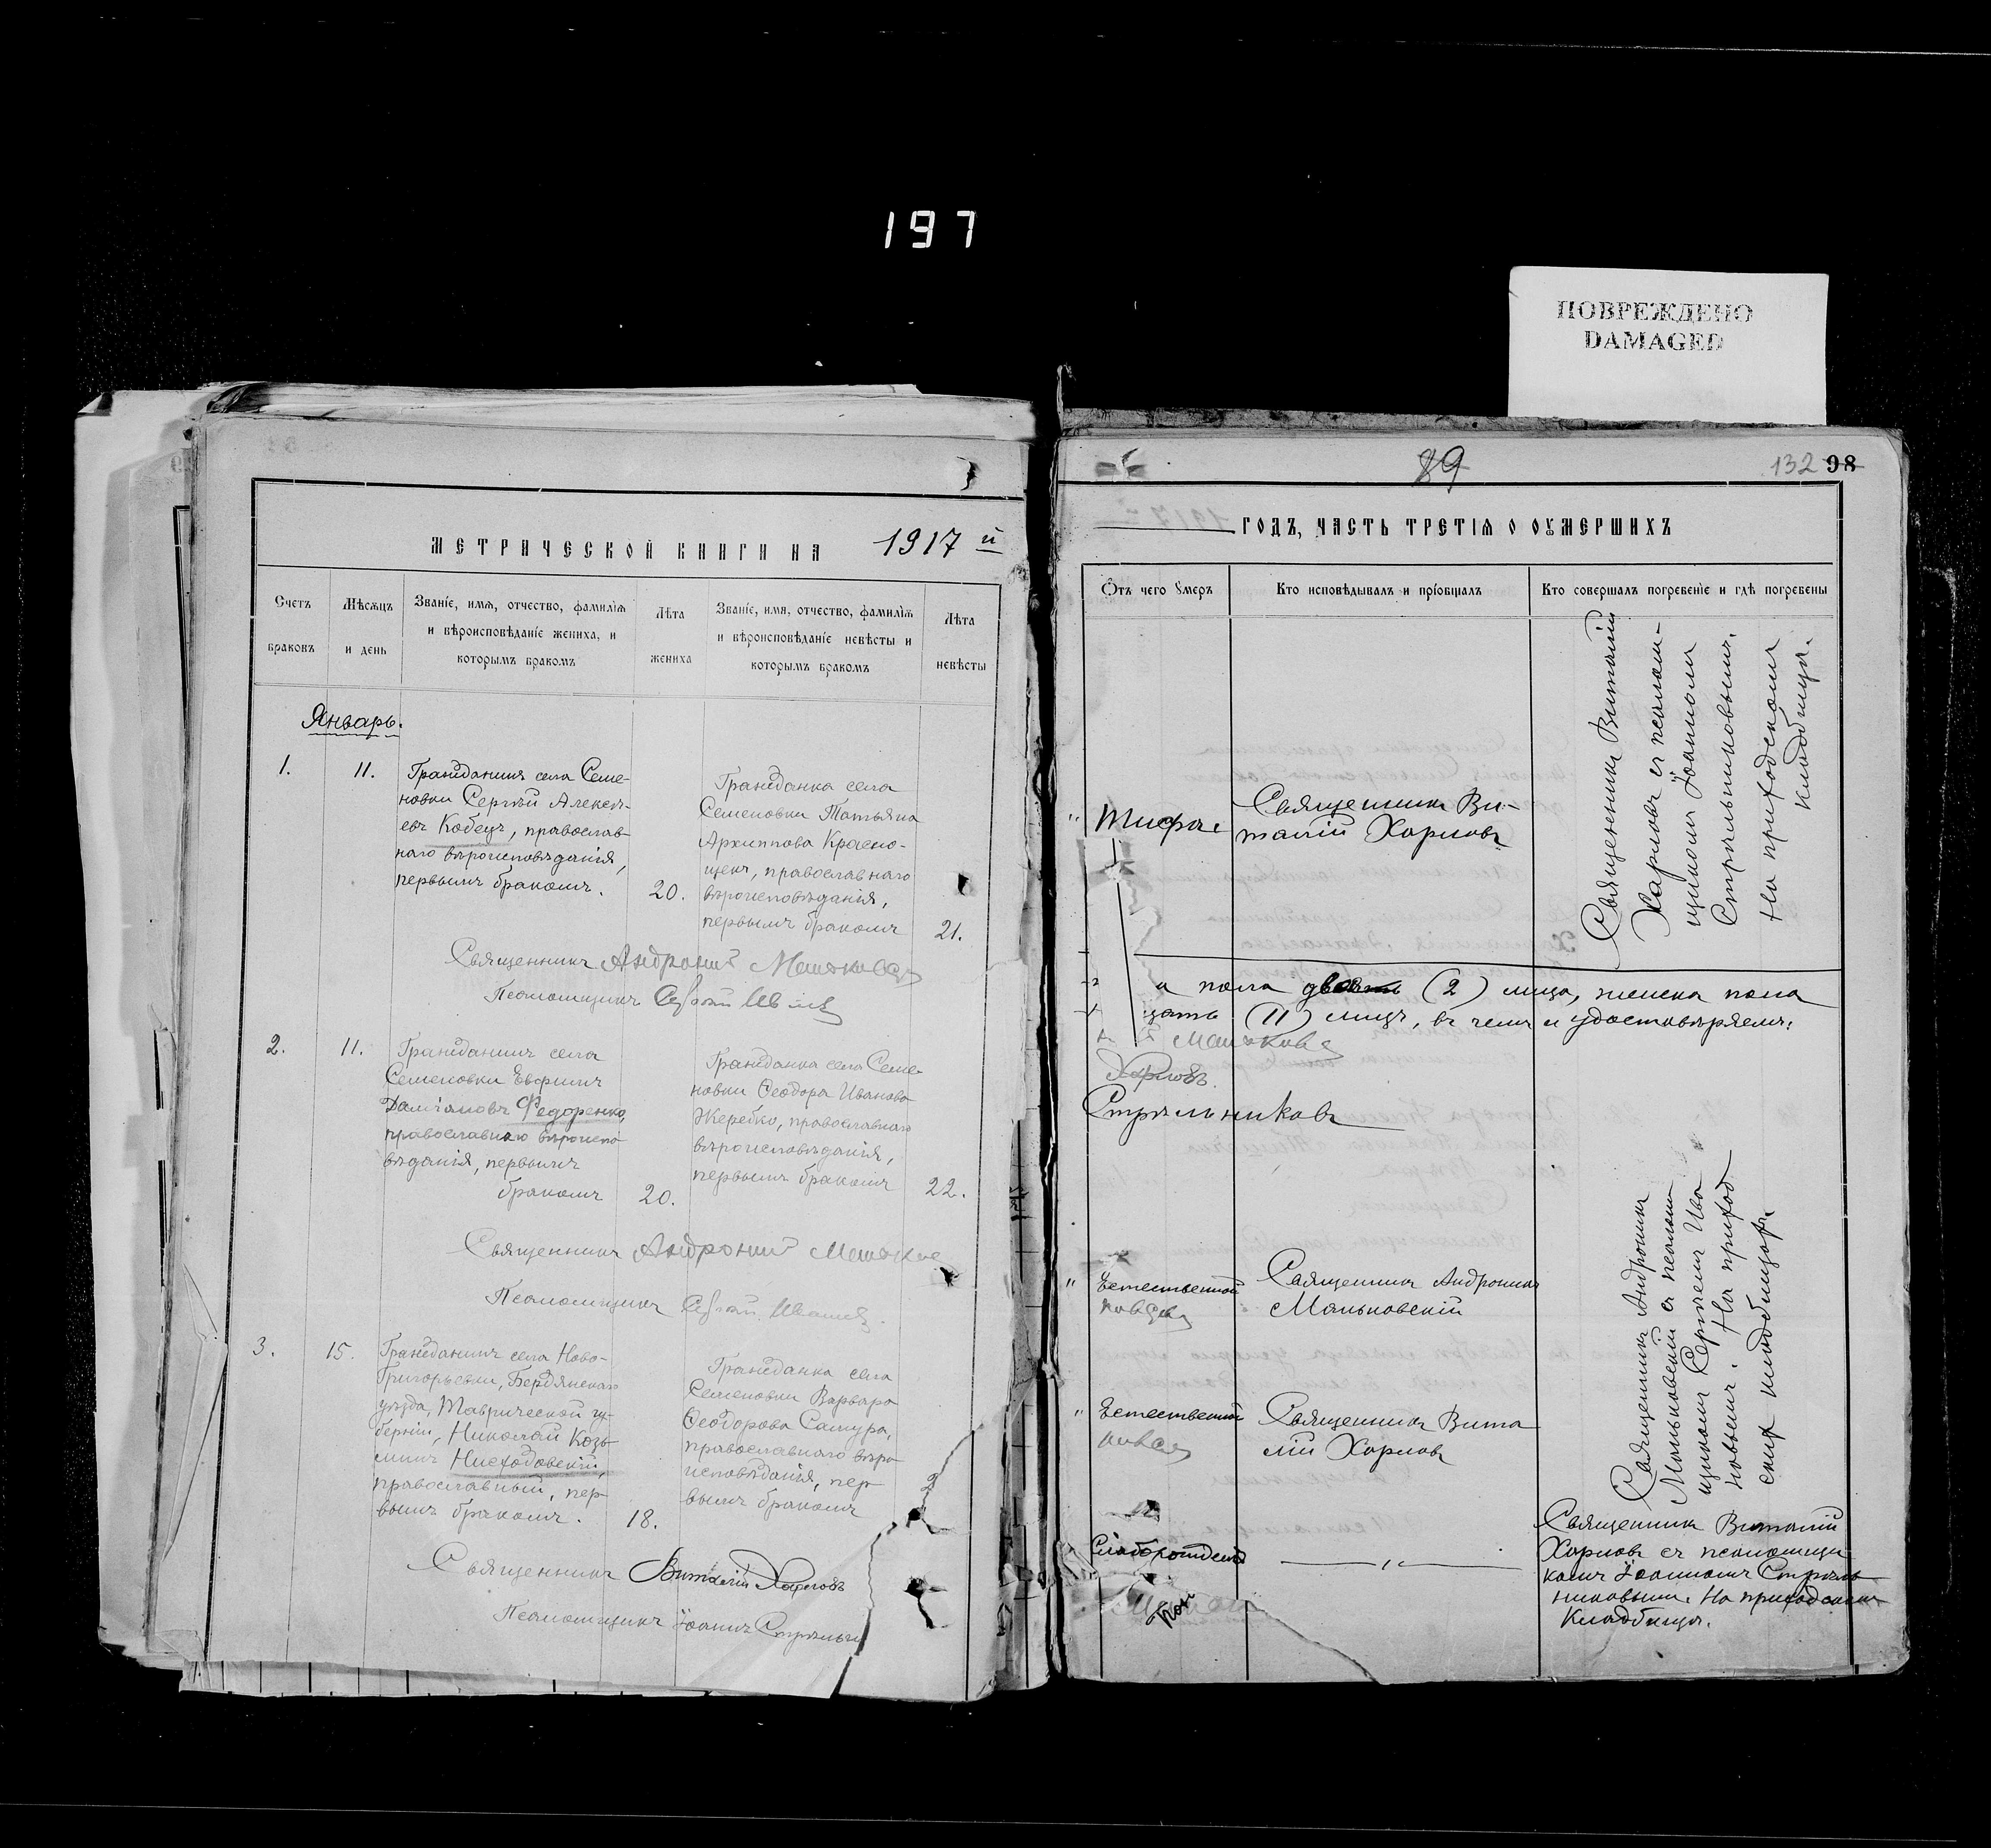 197
ПОВРЕЖДЕНО
DAMAGED
МЕТРИЧЕСКОЙ КНИГИ НА 1917 й
Счетъ браковъ
Мѣсяцъ и день
Званіе, имя, отчество, фамилія
и вѣроисповѣданіе жениха, и
которымъ бракомъ
Лѣта
жениха
Званіе, имя, отчество, фамилія
и вѣроисповѣданіе невѣсты и
которымъ бракомъ
Лѣта
невѣсты
Январь.
1.
11.
Гражданинъ села Семе-
новки Сергѣй Алексѣ-
евъ Кобецъ, православ-
наго вѣроисповѣданія,
первымъ бракомъ.
20.
Гражданка села
Семеновки Татьяна
Архиппова Красно-
щекъ, православнаго
вѣроисповѣданія,
первымъ бракомъ
21.
Священникъ Андроникъ
Псаломщикъ Сергѣй
2.
11.
Гражданинъ села
Семеновки Евфимъ
Даміановъ Федоренко,
православнаго вѣроиспо-
вѣданія, первымъ
бракомъ
20.
Гражданка села Семе-
новки Ѳеодора Иванова
Жеребко, православнаго
вѣроисповѣданія,
первымъ бракомъ
22.
Священникъ Андроникъ
Псаломщикъ Сергѣй
3.
15.
Гражданинъ села Ново-
Григорьевки, Бердянскаго
уѣзда, Таврической гу-
берніи, Николай Козь-
минъ Нисходовскій,
православный, пер-
вымъ бракомъ.
18.
Гражданка села
Семеновки Варвара
Ѳеодорова Самура,
православнаго вѣро
исповѣданія, пер-
вымъ бракомъ
2
Священникъ Виталій Харловъ
Псаломщикъ Іоаннъ Стрѣльни
89
132 98
ГОДЪ, ЧАСТЬ ТРЕТІЯ О ОУМЕРШИХЪ
Отъ чего умеръ
Кто исповѣдывалъ и пріобщалъ
Кто совершалъ погребеніе и гдѣ погребены
" Тифа
Священникъ Ви-
талій Харловъ
Священникъ Виталій
Харловъ съ псалом-
щикомъ Іоанномъ
Стрѣльниковымъ.
На приходскомъ
кладбищѣ.
а пола (2) лица, женска пола
цать (11) лицъ, въ чемъ и удостовѣряемъ:
Харловъ.
Стрѣльниковъ
" Естественной
Священникъ Андроникъ
Маньковскій
" Естественной
Священникъ Вита
лій Харловъ
Священникъ Андроникъ
Маньковскій съ псалом
щикомъ Сергѣемъ Ива
новымъ. На приход
скомъ кладбищѣ.
Слаборожденія
—„—
Священникъ Виталій
Харловъ съ псаломщи
комъ Іоанномъ Стрѣль
никовымъ. На приходскомъ
Кладбищѣ.